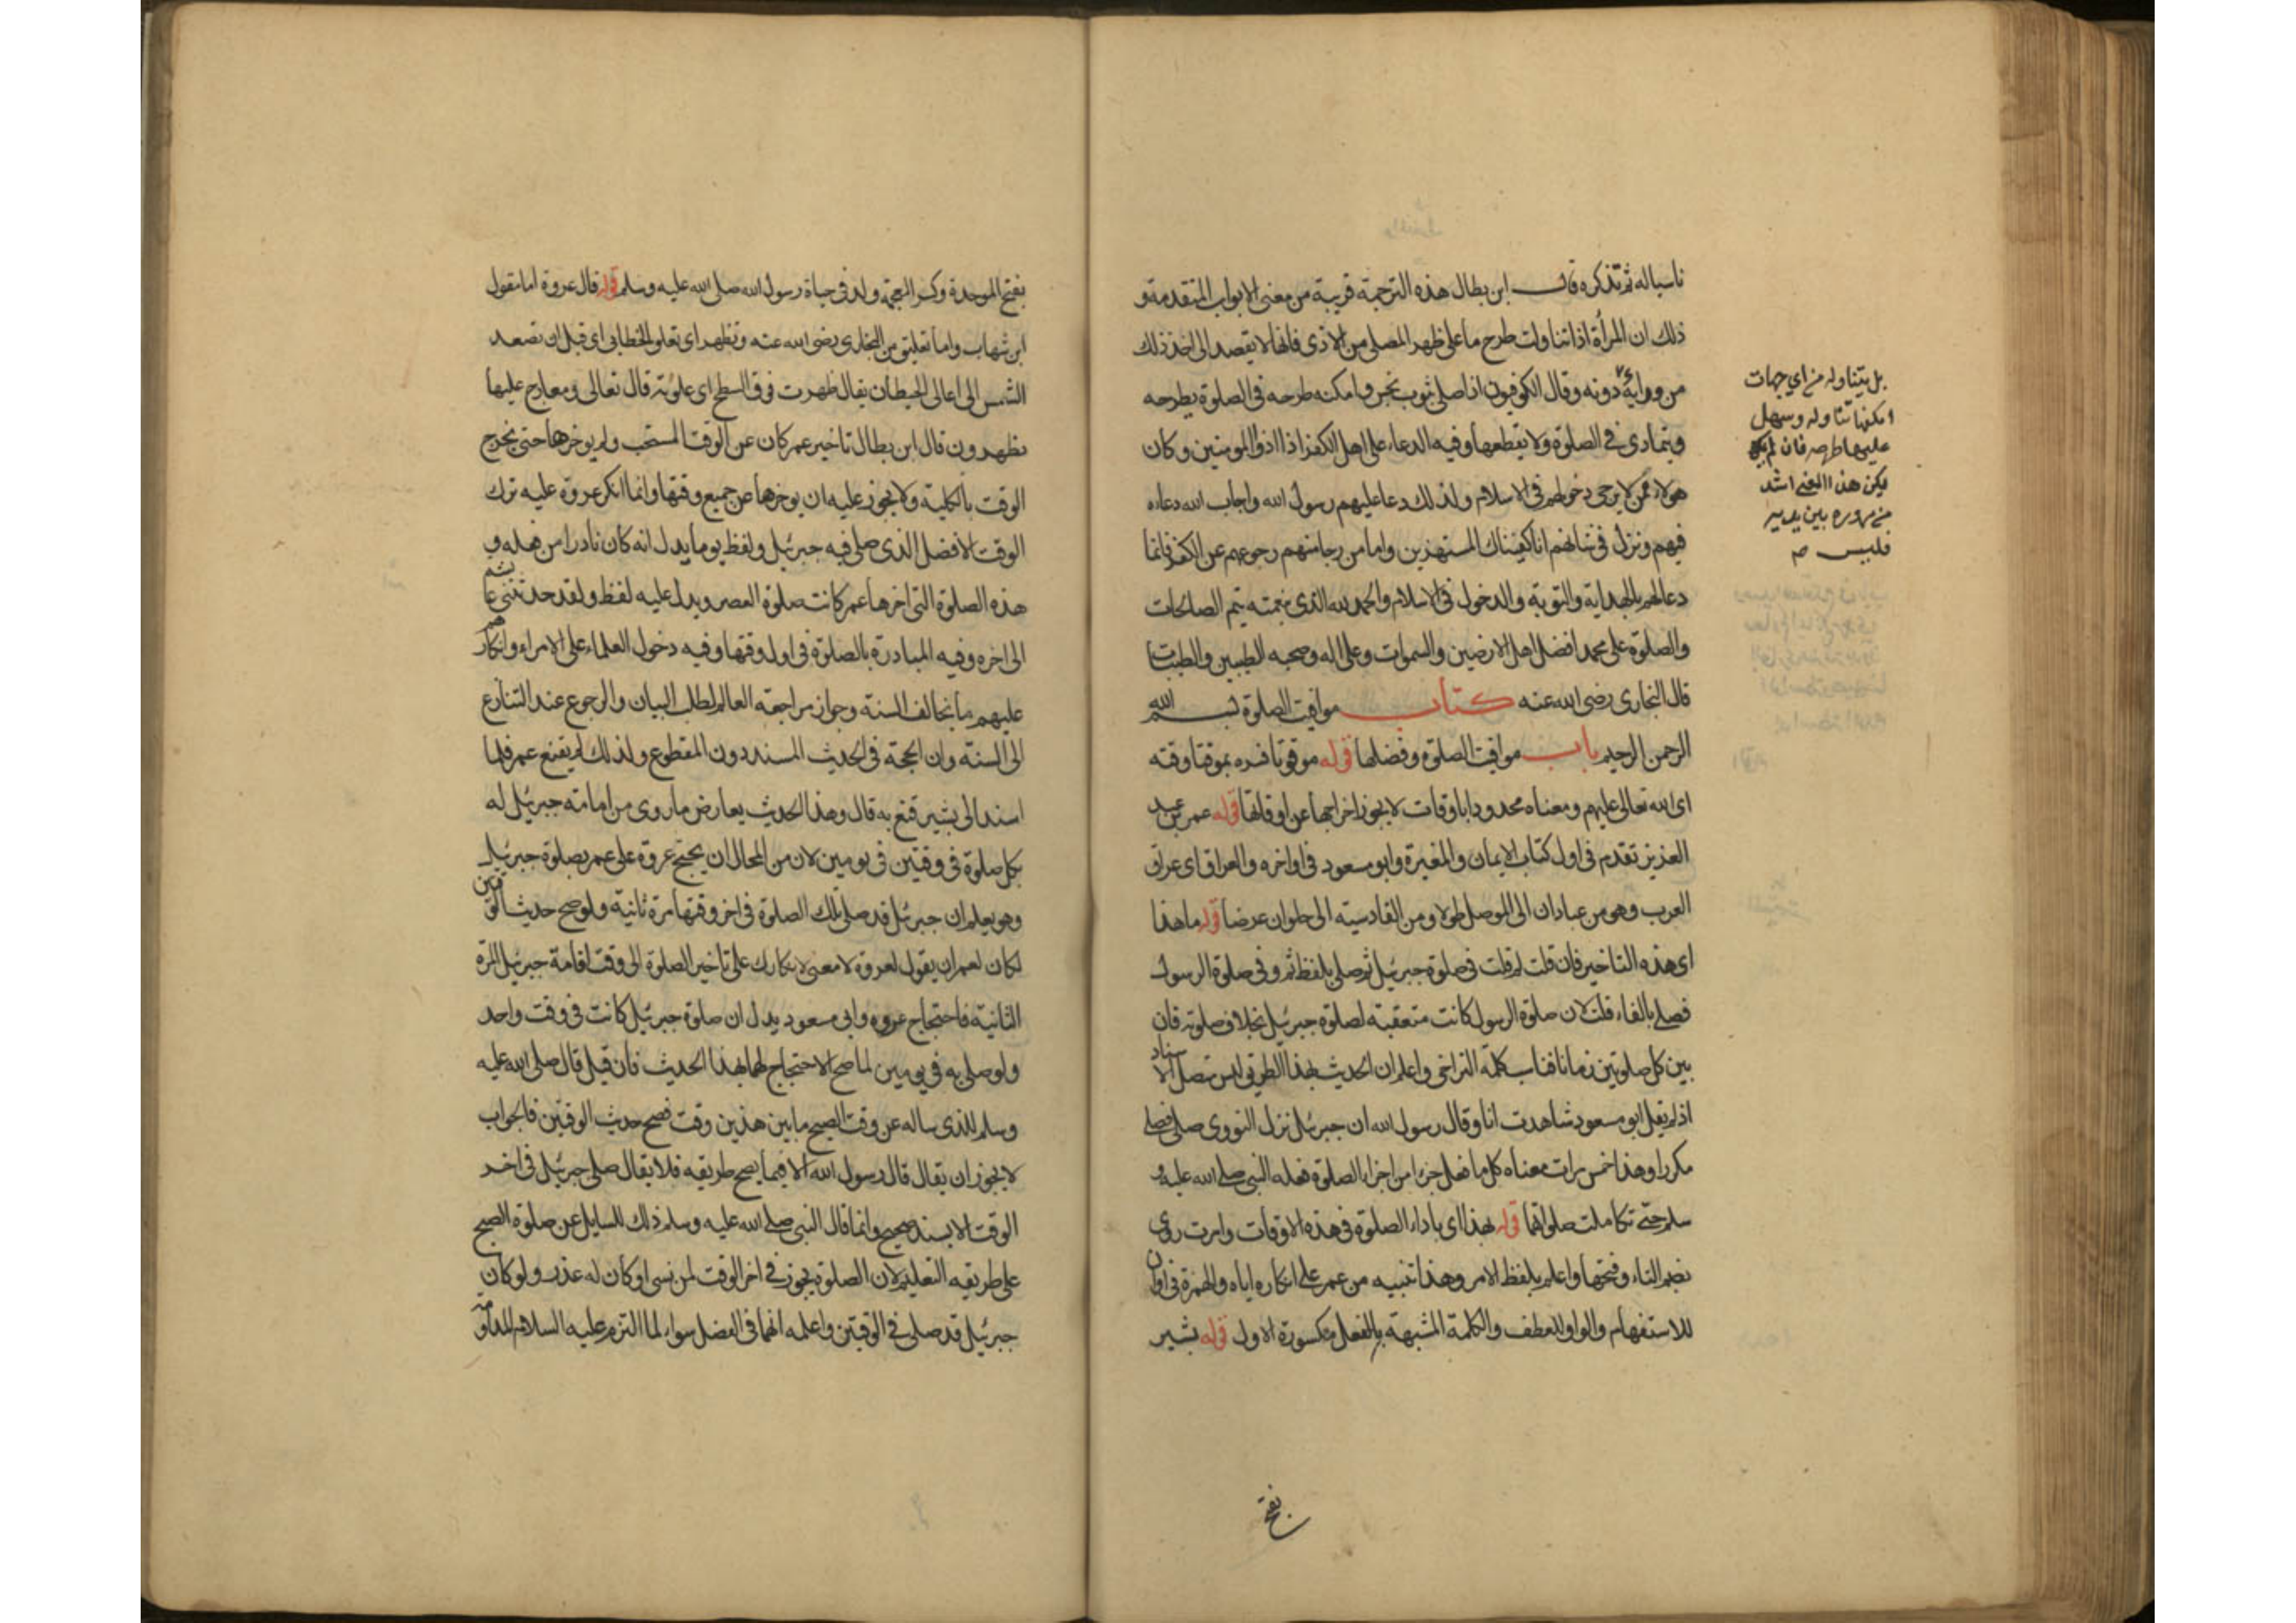 ناسياله ثم تذكره قال ابن بطال هذه الترجمة قريبة من معنى الابواب المتقدمة و
ذلك ان المرأة اذا تناولت طرح ما على ظهر المصلي من الاذى فانها لا تقصد الى اخذ ذلك
من ورائه دونه وقال الكوفيون اذا صلى بثوب نجس وامكنه طرحه في الصلوة يطرحه
ويتمادى في الصلوة ولا يقطعها وفيه الدعاء على اهل الكفر اذا اذوا المومنين وكان
هولاء ممن لا يرجى دخولهم في الاسلام ولذلك دعا عليهم رسول الله واجاب الله دعاءه
فيهم ونزل في شانهم انا كفيناك المستهزين واما من رجا منهم رجوعهم عن الكفر فانما
دعا لهم بالهداية والتوبة والدخول في الاسلام والحمد لله الذي بنعمته يتم الصالحات
والصلوة على محمد افضل اهل الارضين والسموات وعلى اله وصحبه الطيبين والطيبات
قال البخاري رضى الله عنه كتاب مواقيت الصلوة بسم الله
الرحمن الرحيم باب مواقيت الصلوة وفضلها قوله موقوتا فسره بموقتا وقته
اى الله تعالى عليهم ومعناه محدودا باوقات لا يجوز اخراجها عن اوقاتها قوله عمر بن عبد
العزيز تقدم في اول كتاب الايمان والمغيرة وابو مسعود في اواخره والعراق اى عراق
العرب وهو من عبادان الى الموصل طولا ومن القادسية الى حلوان عرضا قوله ما هذا
اى هذه التاخير فان قلت لم قلت في صلوة جبرئيل ثم صلى بلفظ ثم وفي صلوة الرسول
فصلى بالفاء قلت لان صلوة الرسول كانت متعقبة لصلوة جبرئيل بخلاف صلوته فان
بين كل صلوتين زمانا فناسب كلمة التراخى واعلم ان الحديث بهذا الطريق ليس متصل الاسناد
اذ لم يقل ابو مسعود شاهدت انا وقال رسول الله ان جبرئيل نزل النووي صلى فصلى
مكررا وهذا خمس مرات معناه كل ما فعل جزءا من اجزاء الصلوة فعله النبي صلى الله عليه و
سلم حتى تكاملت صلوتهما قوله بهذا اى باداء الصلوة في هذه الاوقات وامرت روى
بضم التاء وفتحها واعلم بلفظ الامر وهذا تنبيه من عمر على انكاره اياه والهمزة في اوان
للاستفهام والواو للعطف والكلمة المشبهة بالفعل مكسورة الاول قوله بشير
بل يتناوله من اى جهات
امكنها تناوله وسهل
عليها طرحه فان لم
يكن هذا المعنى اشد
من مروره بين يديه
فليس
بفتح
بفتح الموحدة وكسر المعجمة ولد في حياة رسول الله صلى الله عليه وسلم قوله قال عروة اما مقول
ابن شهاب واما تعليق من البخاري رضى الله عنه وتظهر اى تعلو الخطابى اى قبل ان تصعد
الشمس الى اعالى الحيطان يقال ظهرت فوق السطح اى علوته قال تعالى ومعارج عليها
يظهرون قال ابن بطال تاخير عمر كان عن الوقت المستحب ولم يوخرها حتى يخرج
الوقت بالكلية ولا يجوز عليه ان يوخرها عن جميع وقتها وانما انكر عروة عليه ترك
الوقت الافضل الذي صلى فيه جبرئيل ولفظ يوما يدل انه كان نادرا من فعله و
هذه الصلوة التى اخرها عمر كانت صلوة العصر ويدل عليه لفظ ولقد حدثتنى عائشة
الى اخره وفيه المبادرة بالصلوة في اول وقتها وفيه دخول العلماء على الامراء وانكارهم
عليهم ما يخالف السنة وجواز مراجعة العالم لطلب البيان والرجوع عند التنازع
الى السنة وان الحجة في الحديث المسند دون المقطوع ولذلك لم يقنع عمر فلما
اسند الى بشير قنع به قال وهذا الحديث يعارض ما روى من امامة جبرئيل له
بكل صلوة في وقتين في يومين لان من المحال ان يحتج عروة على عمر بصلوة جبرئيل
وهو يعلم ان جبرئيل قد صلى تلك الصلوة في اخر وقتها مرة ثانية ولو صح حديث الوقتين
لكان لعمر ان يقول لعروة لا معنى لانكارك على تاخير الصلوة الى وقت اقامة جبرئيل المرة
الثانية فاحتجاج عروه وابى مسعود يدل ان صلوة جبرئيل كانت في وقت واحد
ولو صلى به في يومين لما صح الاحتجاج لهما بهذا الحديث فان قيل قال صلى الله عليه
وسلم للذى ساله عن وقت الصبح ما بين هذين وقت فصح حديث الوقتين فالجواب
لا يجوز ان يقال قال رسول الله الا فيما يصح طريقه فلا يقال صلى جبرئيل في اخر
الوقت الا بسند صحيح وانما قال النبي صلى الله عليه وسلم ذلك للسايل عن صلوة الصبح
على طريقه التعليم لان الصلوة يجوز في اخر الوقت لمن نسى او كان له عذر ولو كان
جبرئيل قد صلى في الوقتين واعلمه انهما في الفضل سواء لما التزم عليه السلام المداومة